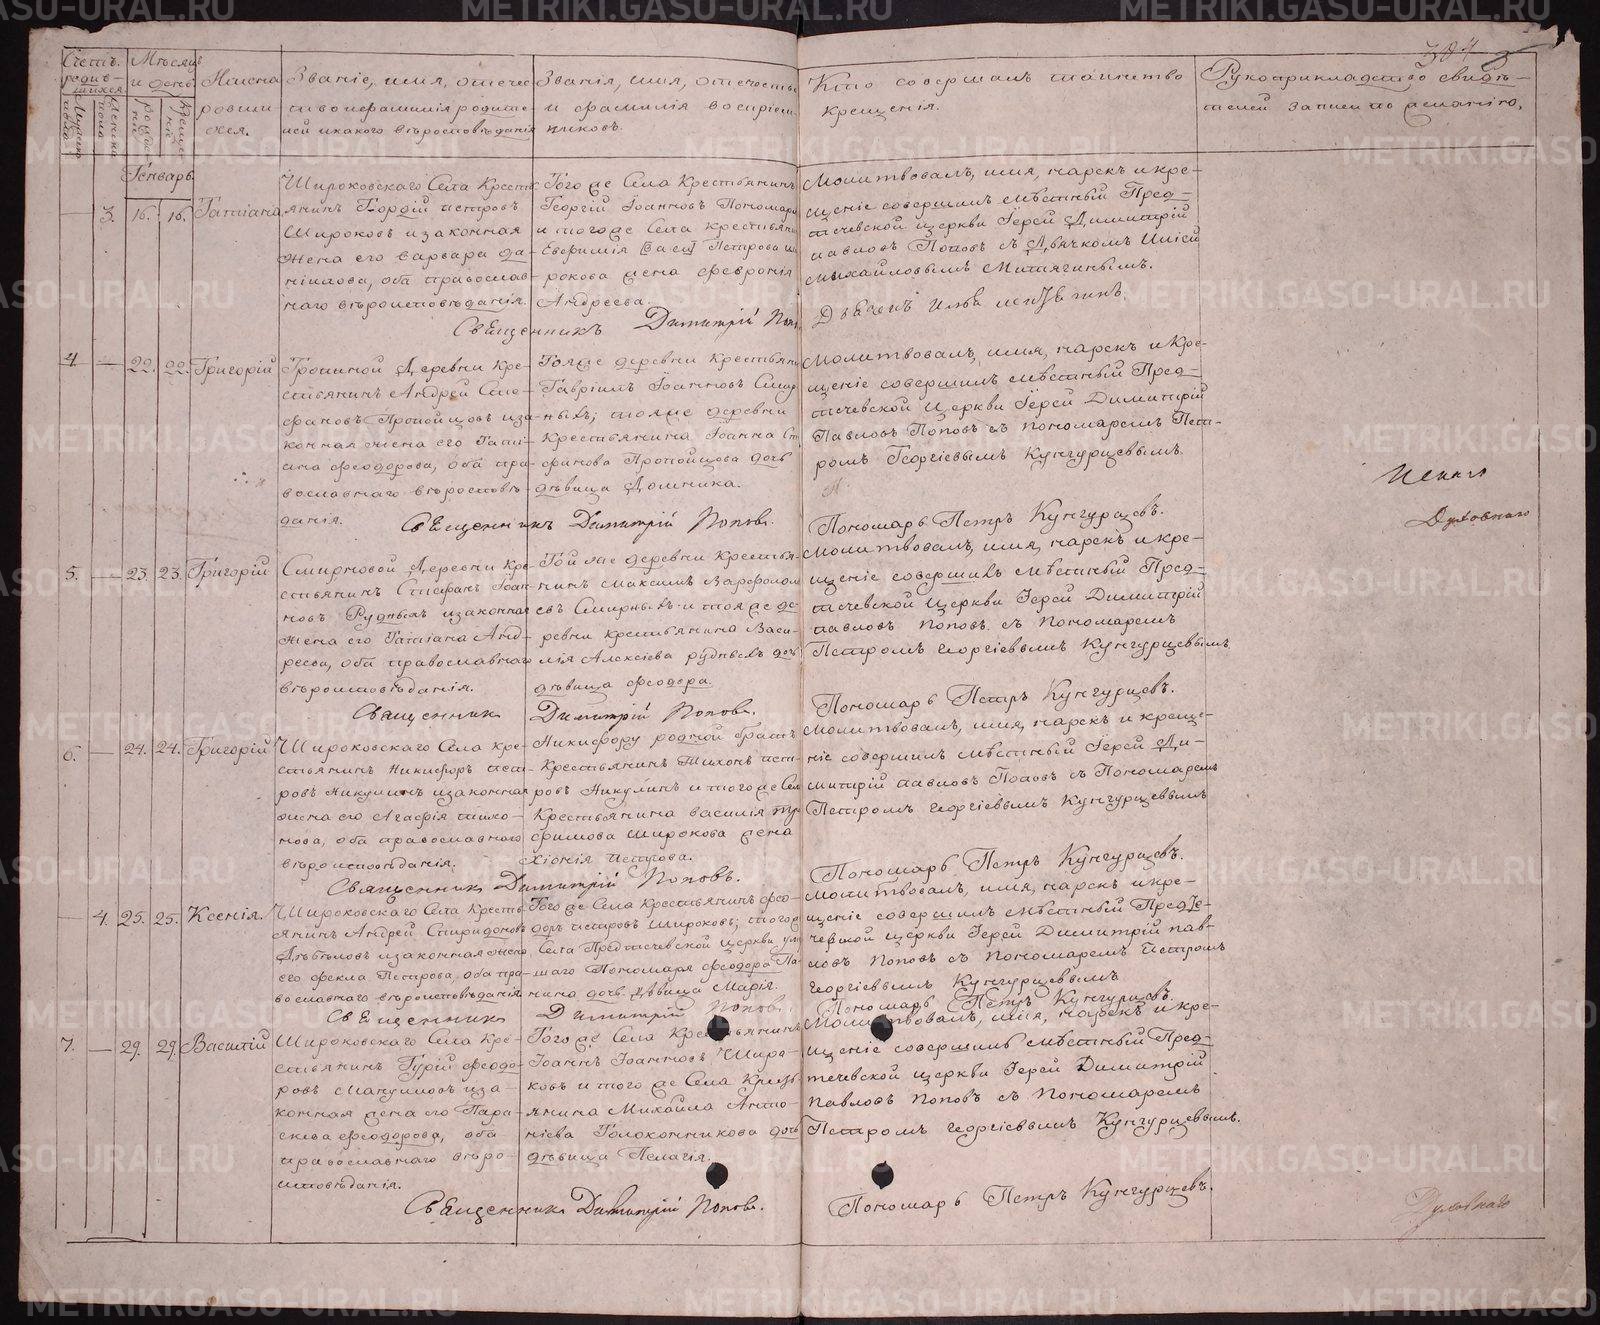 Счетъ родив-шихся.
Мужеска пола
Женска пола
Мѣсяцъ и день
рожденія
крещенія
Имена родивши-хся.
Званіе, имя, отече-
ство и фамилія родите-
лей и какого вѣроисповѣданія
Званія, имя, отечество
и фамилія воспріем-
никовъ.
Кто совершалъ таинство
крещенія.
Рукоприкладство свидѣ-
телей записи по желанію.
Генварь
3. 16. 16. Татіана
Широковскаго Села Кресть-
янинъ Гордій Петровъ
Широковъ и законная
жена его Варвара Да-
ніилова, оба православ-
наго вѣроисповѣданія.
Того же Села Крестьянинъ
Георгій Іоанновъ Пономарь
и того же Села крестьяни
Евфимія Петрова Ши
рокова жена Февронія
Андреева.
Священникъ Димитрій Попо
Молитвовалъ, имя, нарекъ и кре-
щеніе совершилъ мѣстный Пред-
течевской церкви Іерей Димитрій
Павловъ Поповъ съ Дьячкомъ Иліей
Михайловымъ Митягинымъ.
Дьячекъ Илья
4. — 22. 22. Григорій
Тропиной Деревни Кре-
стьянинъ Андрей Сте-
фановъ Пропойцовъ и за-
конная жена его Тати-
ана Феодорова, оба пра-
вославнаго вѣроисповѣ-
данія.
Тояже деревни Крестьяни
Гавріилъ Іоанновъ Смир
ныхъ; тояже деревни
Крестьянина Іоанна Ст
фанова Пропойцова дочь
дѣвица Домника.
Священникъ Димитрій Поповъ.
Молитвовалъ, имя, нарекъ и Кре-
щеніе совершилъ мѣстный Пред-
течевской Церкви Іерей Димитрій
Павловъ Поповъ съ пономаремъ Пет-
ромъ Георгіевымъ Кунгурцевымъ.
Пономарь Петръ Кунгурцевъ.
Духовнаго
5. — 23. 23. Григорій
Смирновой Деревни Кре-
стьянинъ Стефанъ Іоан-
новъ Рудныхъ и законная
жена его Татіана Анд-
реева, оба православнаго
вѣроисповѣданія.
Той же деревни крестья-
нинъ Максимъ Варфолом
евъ Смирныхъ и тояже де-
ревни крестьянина Васи-
лія Алексіева Рудныхъ дочь
дѣвица Феодора.
Священникъ Димитрій Поповъ.
Молитвовалъ, имя, нарекъ и кре-
щеніе совершилъ мѣстный Пред-
течевской Церкви Іерей Димитрій
Павловъ Поповъ съ Пономаремъ
Петромъ Георгіевымъ Кунгурцевымъ
Пономарь Петръ Кунгурцевъ.
6. — 24. 24. Григорій
Широковскаго Села кре-
стьянинъ Никифоръ Пет-
ровъ Никулинъ и законная
жена его Агафія Тихо-
нова, оба православнаго
вѣроисповѣданія.
Никифору родной братъ
Крестьянинъ Тихонъ Пет-
ровъ Никулинъ и того же Села
Крестьянина Василія Тру
фимова Широкова жена
Хіонія Петрова.
Священникъ Димитрій Поповъ.
Молитвовалъ, имя, нарекъ и креще-
ніе совершилъ мѣстный Іерей Ди-
митрій Павловъ Поповъ съ Пономаремъ
Петромъ Георгіевымъ Кунгурцевымъ
Пономарь Петръ Кунгурцевъ.
— 4. 25. 25. Ксенія.
Широковскаго Села Кресть-
янинъ Андрей Спиридоновъ
и законная жена
его Фекла Петрова, оба пра-
вославнаго вѣроисповѣданія
Того же Села Крестьянинъ Фео-
доръ Петровъ Широковъ; того ж
Села Предтечевской церкви ум
шаго Пономаря Феодора Па-
нина дочь дѣвица Марія.
Священникъ Димитрій Поповъ
Молитвовалъ, имя, нарекъ и кре-
щеніе совершилъ мѣстный Предте-
чевской церкви Іерей Димитрій Пав-
ловъ Поповъ съ Пономаремъ Петромъ
Георгіевымъ Кунгурцевымъ
Пономарь Петръ Кунгурцевъ.
7. — 29. 29. Василій
Широковскаго Села Кре-
стьянинъ Гурій Феодо-
ровъ Мануиловъ и за-
конная жена его Пара-
скева Феодорова, оба
православнаго вѣро-
исповѣданія.
Того же Села Крестьянинъ
Іоаннъ Іоанновъ Широ-
ковъ и того же Села Кресть-
янина Михаила Анто-
ніева Голоконникова дочь
дѣвица Пелагія.
Священникъ Димитрій Поповъ.
Молитвовалъ, имя, нарекъ и кре-
щеніе совершилъ мѣстный Пред-
течевской церкви Іерей Димитрій
Павловъ Поповъ съ Пономаремъ
Петромъ Георгіевымъ Кунгурцевымъ.
Пономарь Петръ Кунгурцевъ.
Духовнаго
METRIKI.GASO-URAL.RU